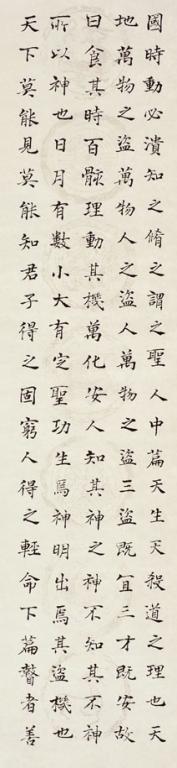 國時動必潰知之脩之謂之聖人中篇天生天殺道之理也天
地萬物之盜萬物人之盜人萬物之盜三盜既宜三才既安故
曰食其時百骸理動其機萬化安人知其神之神不知其不神
所以神也日月有數小大有定聖功生焉神明出焉其盜機也
天下莫能見莫能知君子得之固窮人得之輕命下篇瞽者善